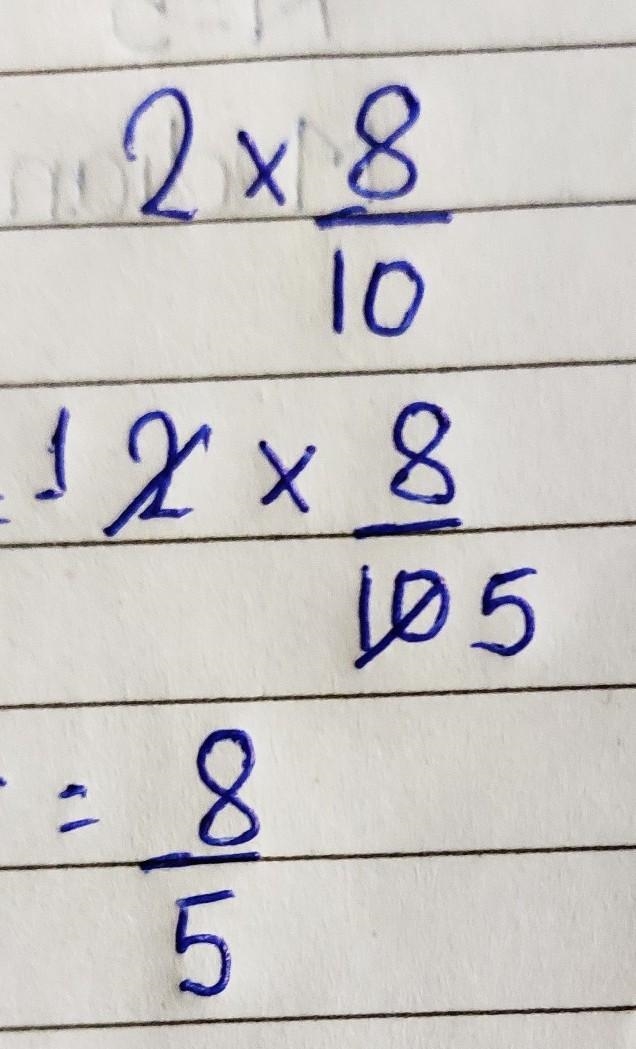 2 × 8/10
1 2 × 8/10 5
= 8/5